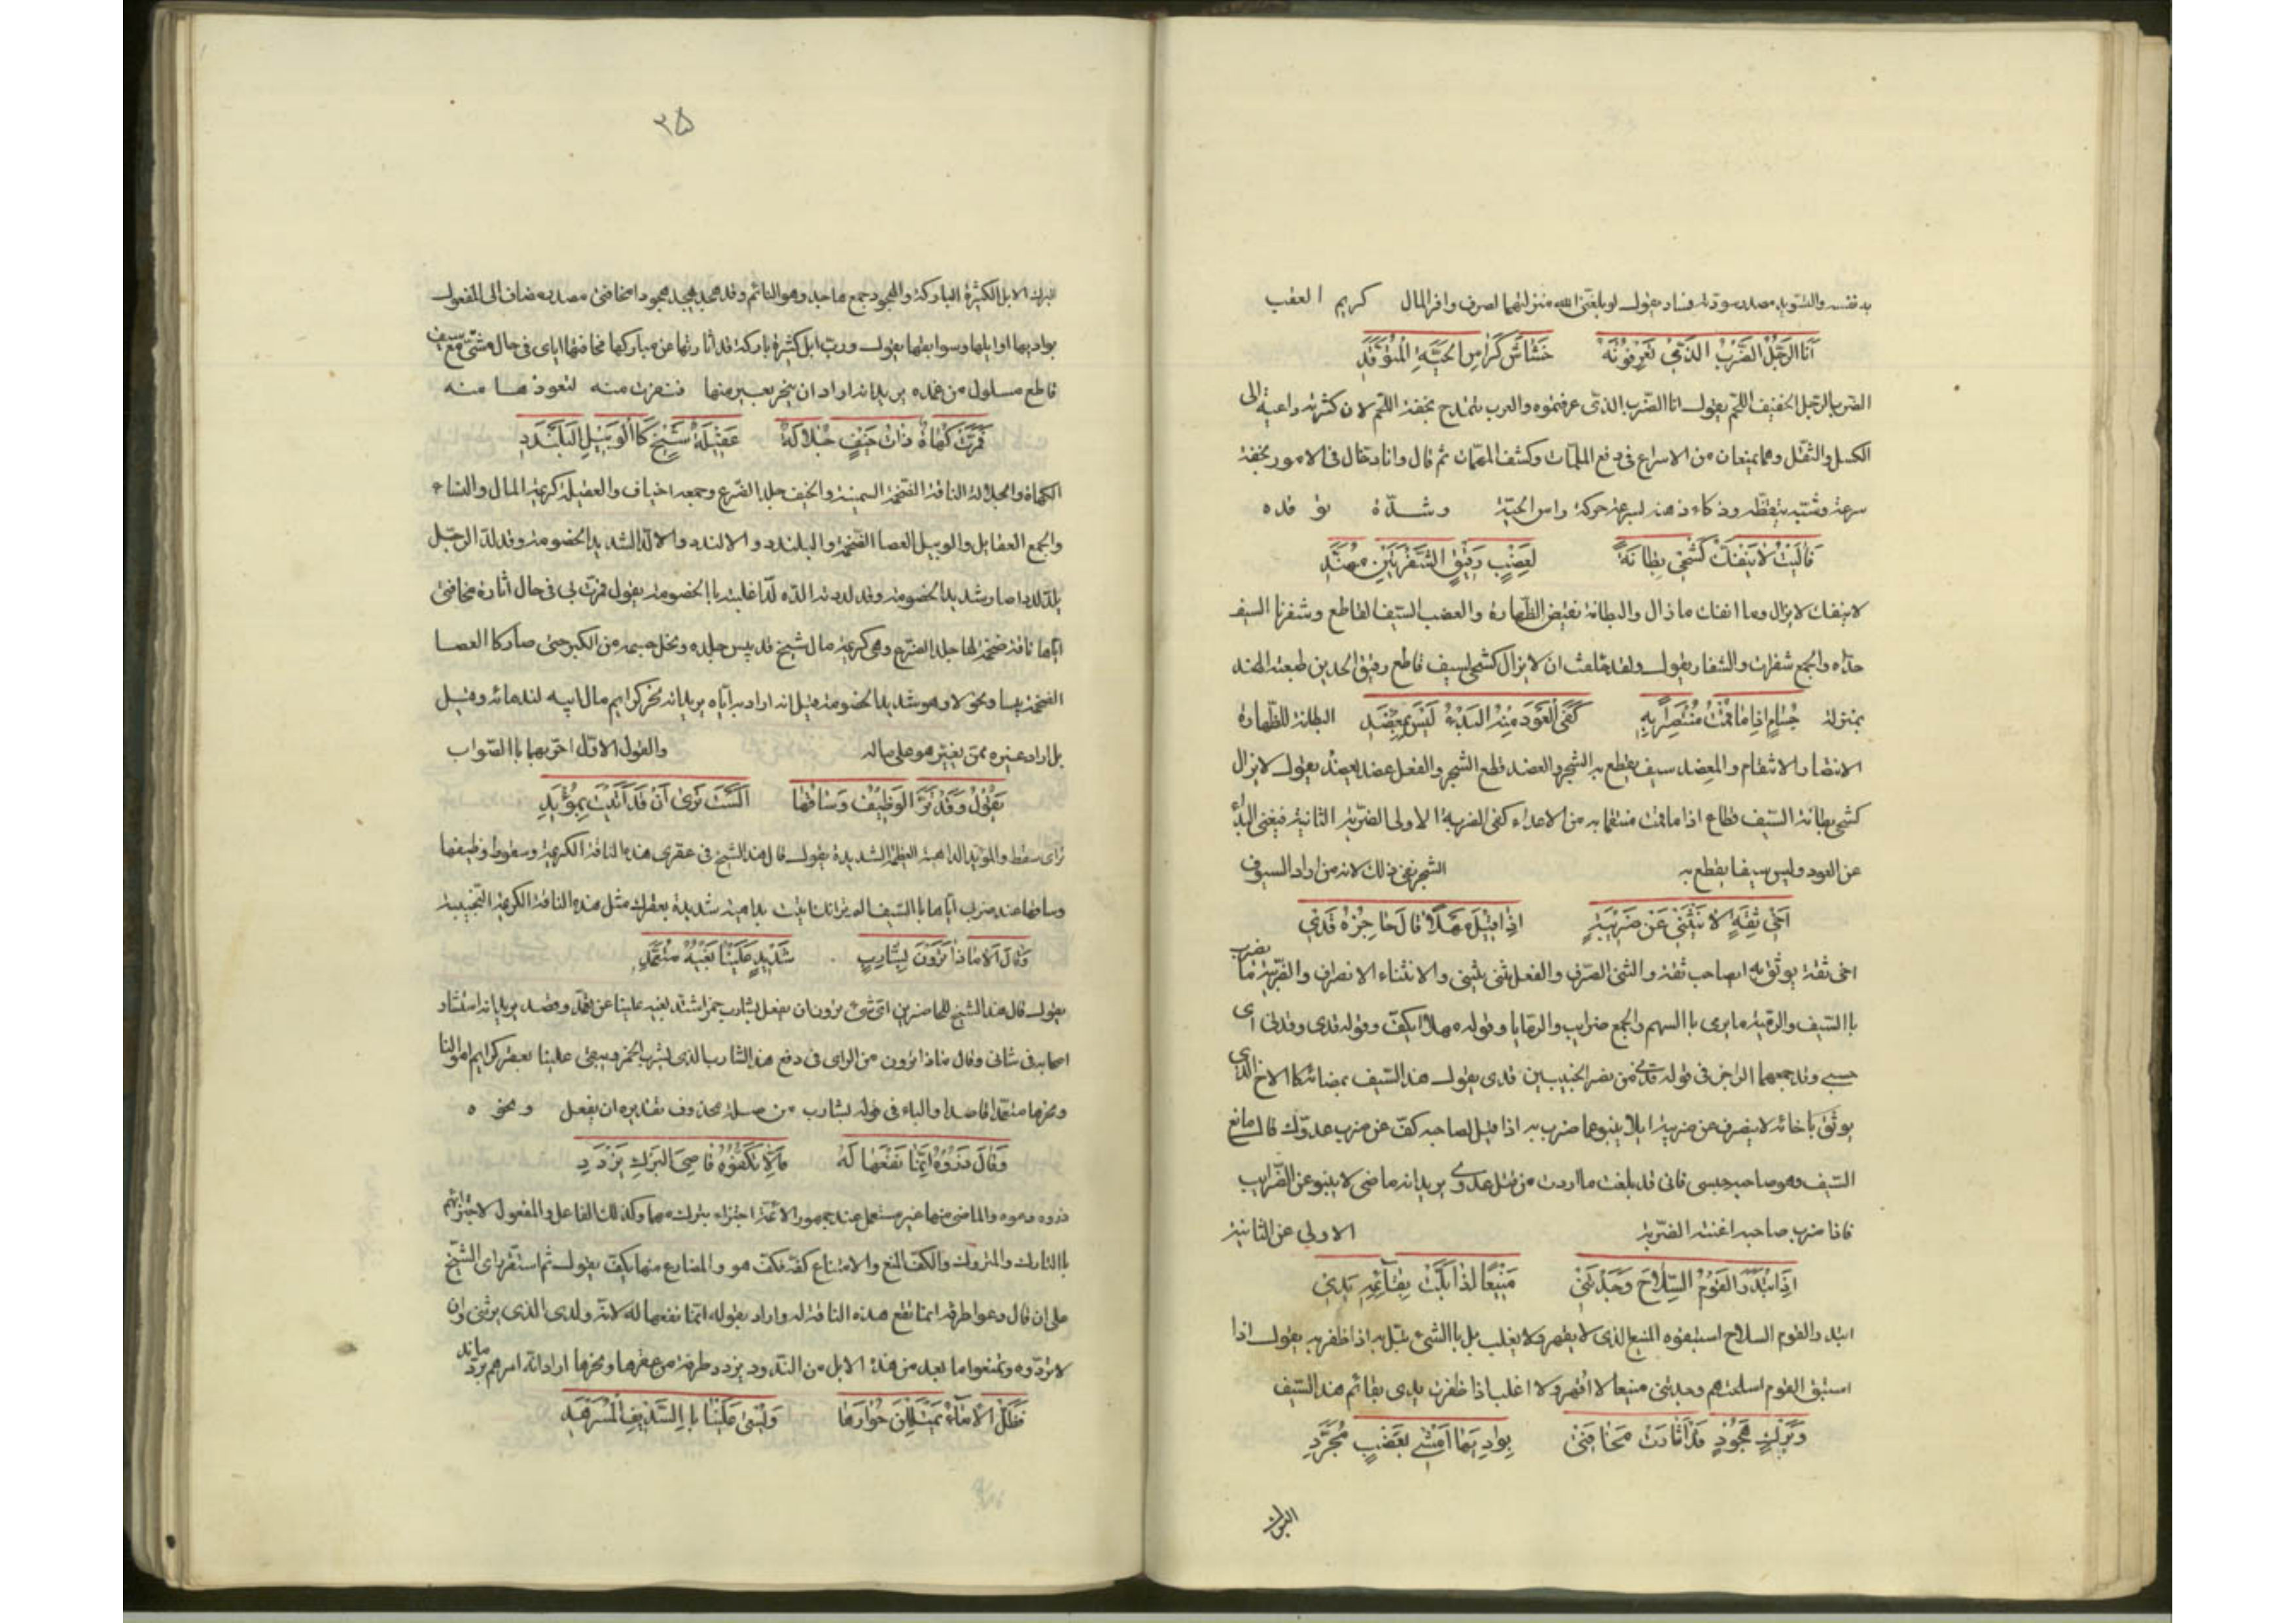 به نفسه والتسويد مصدر سودته فساد يقول لو بلغنى الله منزلتهما لصرت وافر المال كريم العقب
أَنَا الرَّجُلُ الضَّرْبُ الَّذِي تَعْرِفُونَهُ خَشَاشٌ كَرَأسِ الحَيَّةِ المُتَوَقِّدِ
الضرب الرجل الخفيف اللحم يقول انا الضرب الذى عرفتموه والعرب تتمدح بخفة اللحم لان كثرته داعية الى
الكسل والثقل وهما يمنعان من الاسراع فى دفع الملمات وكشف المهمات ثم قال وانا دخال فى الامور بخفة
سرعة وشبه تيقظه وذكاء ذهنه بسرعة حركة راس الحية وشدة توقده
فَآلَيْتُ لا يَنْفَكُّ كَشْحِي بِطَانَةً لِعَضْبٍ رَقِيقِ الشَّفْرَتَيْنِ مُهَنَّدِ
لا ينفك لا يزال وما انفك ما زال والبطانة نقيض الظهارة والعضب السيف القاطع وشفرتا السيف
حداه والجمع شفرات والشفار يقول ولقد حلفت ان لا يزال كشحى لسيف قاطع رقيق الحدين طبعته الهند
بمنزلة حُسَامٍ اِذَا مَا قُمْتُ مُنْتَصِراً بِهِ كَفَى العَوْدَ مِنْهُ البَدْءُ لَيْسَ بِمِعْضَدِ البطانة للظهارة
الانتصار الانتقام والمعضد سيف يقطع به الشجر والعضد قطع الشجر والفعل عضد يعضد يقول لا يزال
كشحى بطانة لسيف قطاع اذا ما قمت منتقما به من الاعداء كفى الضربة الاولى الضربة الثانية فيغنى البدأ
عن العود وليس سيفا يقطع به الشجر نفى ذلك لانه من اردأ السيوف
أَخِي ثِقَةٍ لا يَنْثَنِي عَنْ ضَرِيبَةٍ اِذَا قِيلَ مَهْلاً قَالَ حَاجِزُهُ قَدِي
اخى ثقة يوثق به اى صاحب ثقة والثنى الصرف والفعل ثنى يثنى والانثناء الانصراف والضريبة ما يضرب
باالسيف والرمية ما يرمى باالسهم والجمع ضرايب والرمايا وقوله مهلا اى كف وقوله قدى وقدنى اى
حسبى وقد جمعهما الراجز فى قوله قدنى من نصر الخبيبين قدى يقول هذا السيف بمضائه كالاخ الذى
يوثق باخائه لا ينصرف عن ضريبة اى لا ينبو عما ضرب به اذا قيل لصاحبه كف عن ضرب عدوك قال مانع
السيف وهو صاحبه حسبى فانى قد بلغت ما اردت من قتل عدوى يريد انه ماضى لا ينبو عن الضرايب
فاذا ضرب صاحبه اغنته الضربة الاولى عن الثانية
اِذَا ابْتَدَرَ القَوْمُ السِّلاحَ وَجَدْتَنِي مَنِيعاً اِذَا بَلَّتْ بِقَائِمِهِ يَدِي
ابتدر القوم السلاح استبقوه المنيع الذى لا يقهر ولا يغلب بل باالشئ يبل به اذا ظفر به يقول اذا
استبق القوم اسلحتهم وجدتنى منيعا لا اقهر ولا اغلب اذا ظفرت يدى بقائم هذا السيف
وَبَرْكٍ هُجُودٍ قَدْ اَثَارَتْ مَخَافَتِي بَوَادِيهَا اَمْشِي بِعَضْبٍ مُجَرَّدِ
البرك
٣٥
البرك الابل الكثيرة الباركة والهجود جمع هاجد وهو النائم وقد هجد يهجد هجودا مخافتى مصدر مضاف الى المفعول
بواديها اوايلها وسوابقها يقول ورب ابل كثيرة باركة قد اثارتها عن مباركها مخافتها اياى فى حال مشيى مع سيف
قاطع مسلول من غمده يريد انه اراد ان ينحر بعير منها فنفرت منه لتعوذها منه
فَمَرَّتْ كَهَاةٌ ذَاتُ خَيْفٍ جُلالَةٌ عَقِيلَةُ شَيْخٍ كَاالوَبِيلِ اليَلَنْدَدِ
الكهاة والجلالة الناقة الضخمة السمينة والخيف جلد الضرع وجمعه اخياف والعقيلة كريمة المال والنساء
والجمع العقايل والوبيل العصا الضخمة واليلندد والالندد والالد الشديد الخصومة وقد لد الرجل
يلد لددا صار شديد الخصومة وقد لددته الده لدا غلبته باالخصومة يقول فمرت بى فى حال اثارة مخافتى
اياها ناقة ضخمة لها جلد الضرع وهى كريمة مال شيخ قد يبس جلده ونحل جسمه من الكبر حتى صار كاالعصا
الضخمة يبسا ونحولا وهو شديد الخصومة قيل انه اراد به اباه يريد انه نحر كرايم مال ابيه لندمائه وقيل
بل اراد غيره ممن يغير هو على ماله والقول الاول احريهما باالصواب
يَقُولُ وَقَدْ تَرَّ الوَظِيفُ وَسَاقُهَا اَلَسْتَ تَرَى اَنْ قَدْ اَتَيْتَ بِمُؤْيِدِ
تر اى سقط والمؤيد الداهية العظيمة الشديدة يقول قال هذا الشيخ فى عقرى هذه الناقة الكريمة وسقوط وظيفها
وساقها عند ضربى اياها باالسيف الم تر انك اتيت بداهية شديدة بعقرك مثل هذه الناقة الكريمة النجيبة
وَقَالَ اَلا مَاذَا تَرَوْنَ بِشَارِبٍ شَدِيدٍ عَلَيْنَا بَغْيُهُ مُتَعَمِّدِ
يقول قال هذا الشيخ للحاضرين اى شئ ترون ان يفعل بشارب خمر اشتد بغيه علينا عن تعمد وقصد يريد انه استشار
اصحابه فى شانى وقال ماذا ترون من الراى فى دفع هذا الشارب الذى يشرب الخمر ويبغى علينا بعقر كرايم اموالنا
ونحرها متعمدا قاصدا والباء فى قوله بشارب من صلة محذوف تقديره ان يفعل ونحوه
وَقَالَ ذَرُوهُ اِنَّمَا نَفْعُهَا لَهُ وَاِلا تَكُفُّوهُ قَاصِيَ البَرْكِ يَزْدَدِ
ذروه دعوه والماضى منهما غير مستعمل عند جمهور الائمة اجتزاء بترك منهما وكذلك الفاعل والمفعول لاجتزائهم
باالتارك والمتروك والكف المنع والامتناع كفه فكف هو والمضارع منهما يكف يقول ثم استقر راى الشيخ
على ان قال دعوا طرفة انما نفع هذه الناقة له واراد بقوله انما نفعها له لانه ولدى الذى يرثنى وان
لا تردوه وتمنعوا ما بعد من هذه الابل من الندود يزدد طرفة من عقرها ونحرها اراد انه امرهم برد ما ند
فَظَلَّ الاِمَاءُ يَمْتَلِلْنَ حُوَارَهَا وَيُسْعَى عَلَيْنَا بِاالسَّدِيفِ المُسَرْهَدِ